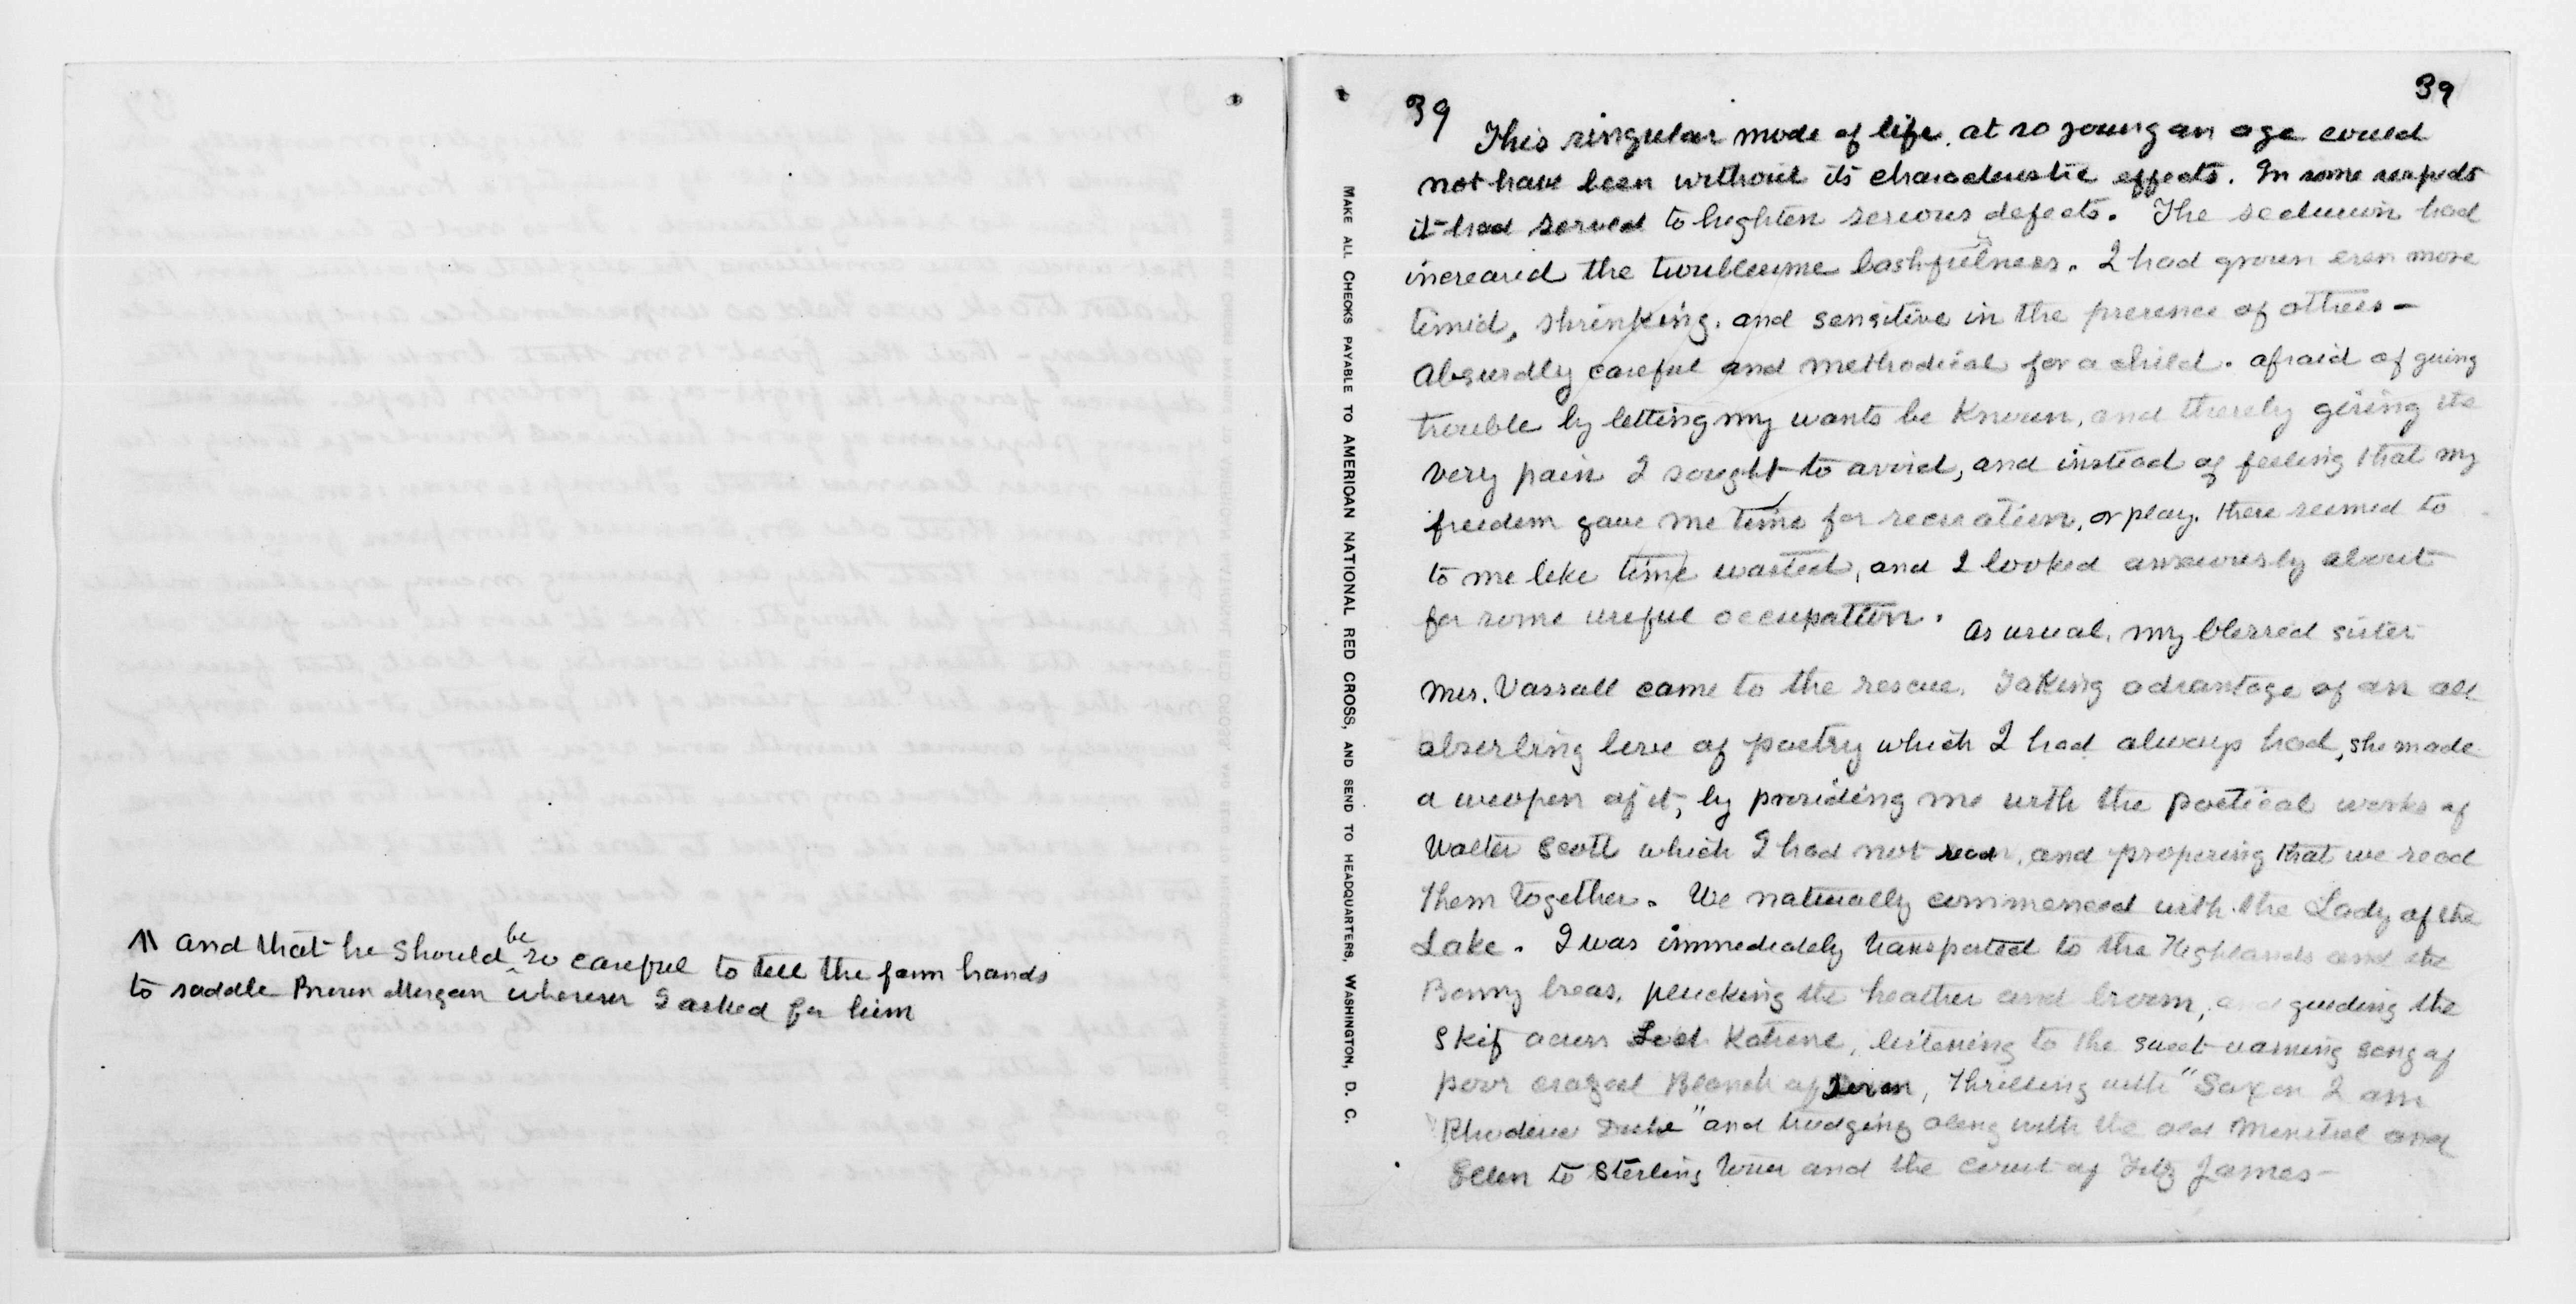 ⁋ and that he should be so careful to tell the farm hands
to saddle Brown Morgan whenever I asked for him
MAKE ALL CHECKS PAYABLE TO AMERICAN NATIONAL RED CROSS, AND SEND TO HEADQUARTERS, WASHINGTON, D. C.
39
39
This singular mode of life, at so young an age could
not have been without its characteristic effects. In some respects
it had served to highten serious defects. The seclusion had
increased the troublesome bashfulness. I had grown even more
timid, shrinking, and sensitive in the presence of others -
absurdly careful and methodical for a child. afraid of giving
trouble by letting my wants be known, and thereby giving the
very pain I sought to avoid, and instead of feeling that my
freedom gave me time for recreation, or play. there seemed to
to me like time wasted, and I looked anxiously about
for some useful occupation. As usual, my blessed sister
Mrs. Vassall came to the rescue. Taking advantage of an all
absorbing love of poetry which I had always had, she made
a weapon of it, by providing me with the poetical works of
Walter Scott which I had not read, and proposing that we read
them together. We naturally commenced with the Lady of the
Lake. I was immediately transported to the Highlands and the
Bonny braes, plucking the heather and broom, and guiding the
skif across Katrine, listening to the sweet warning song of
poor crazed Blanch of Devan, thrilling with "Saxon I am
Rhoderic Dhu" and trudging along with the old Minstrel and
Ellen to Sterling tower and the court of Fitz James -